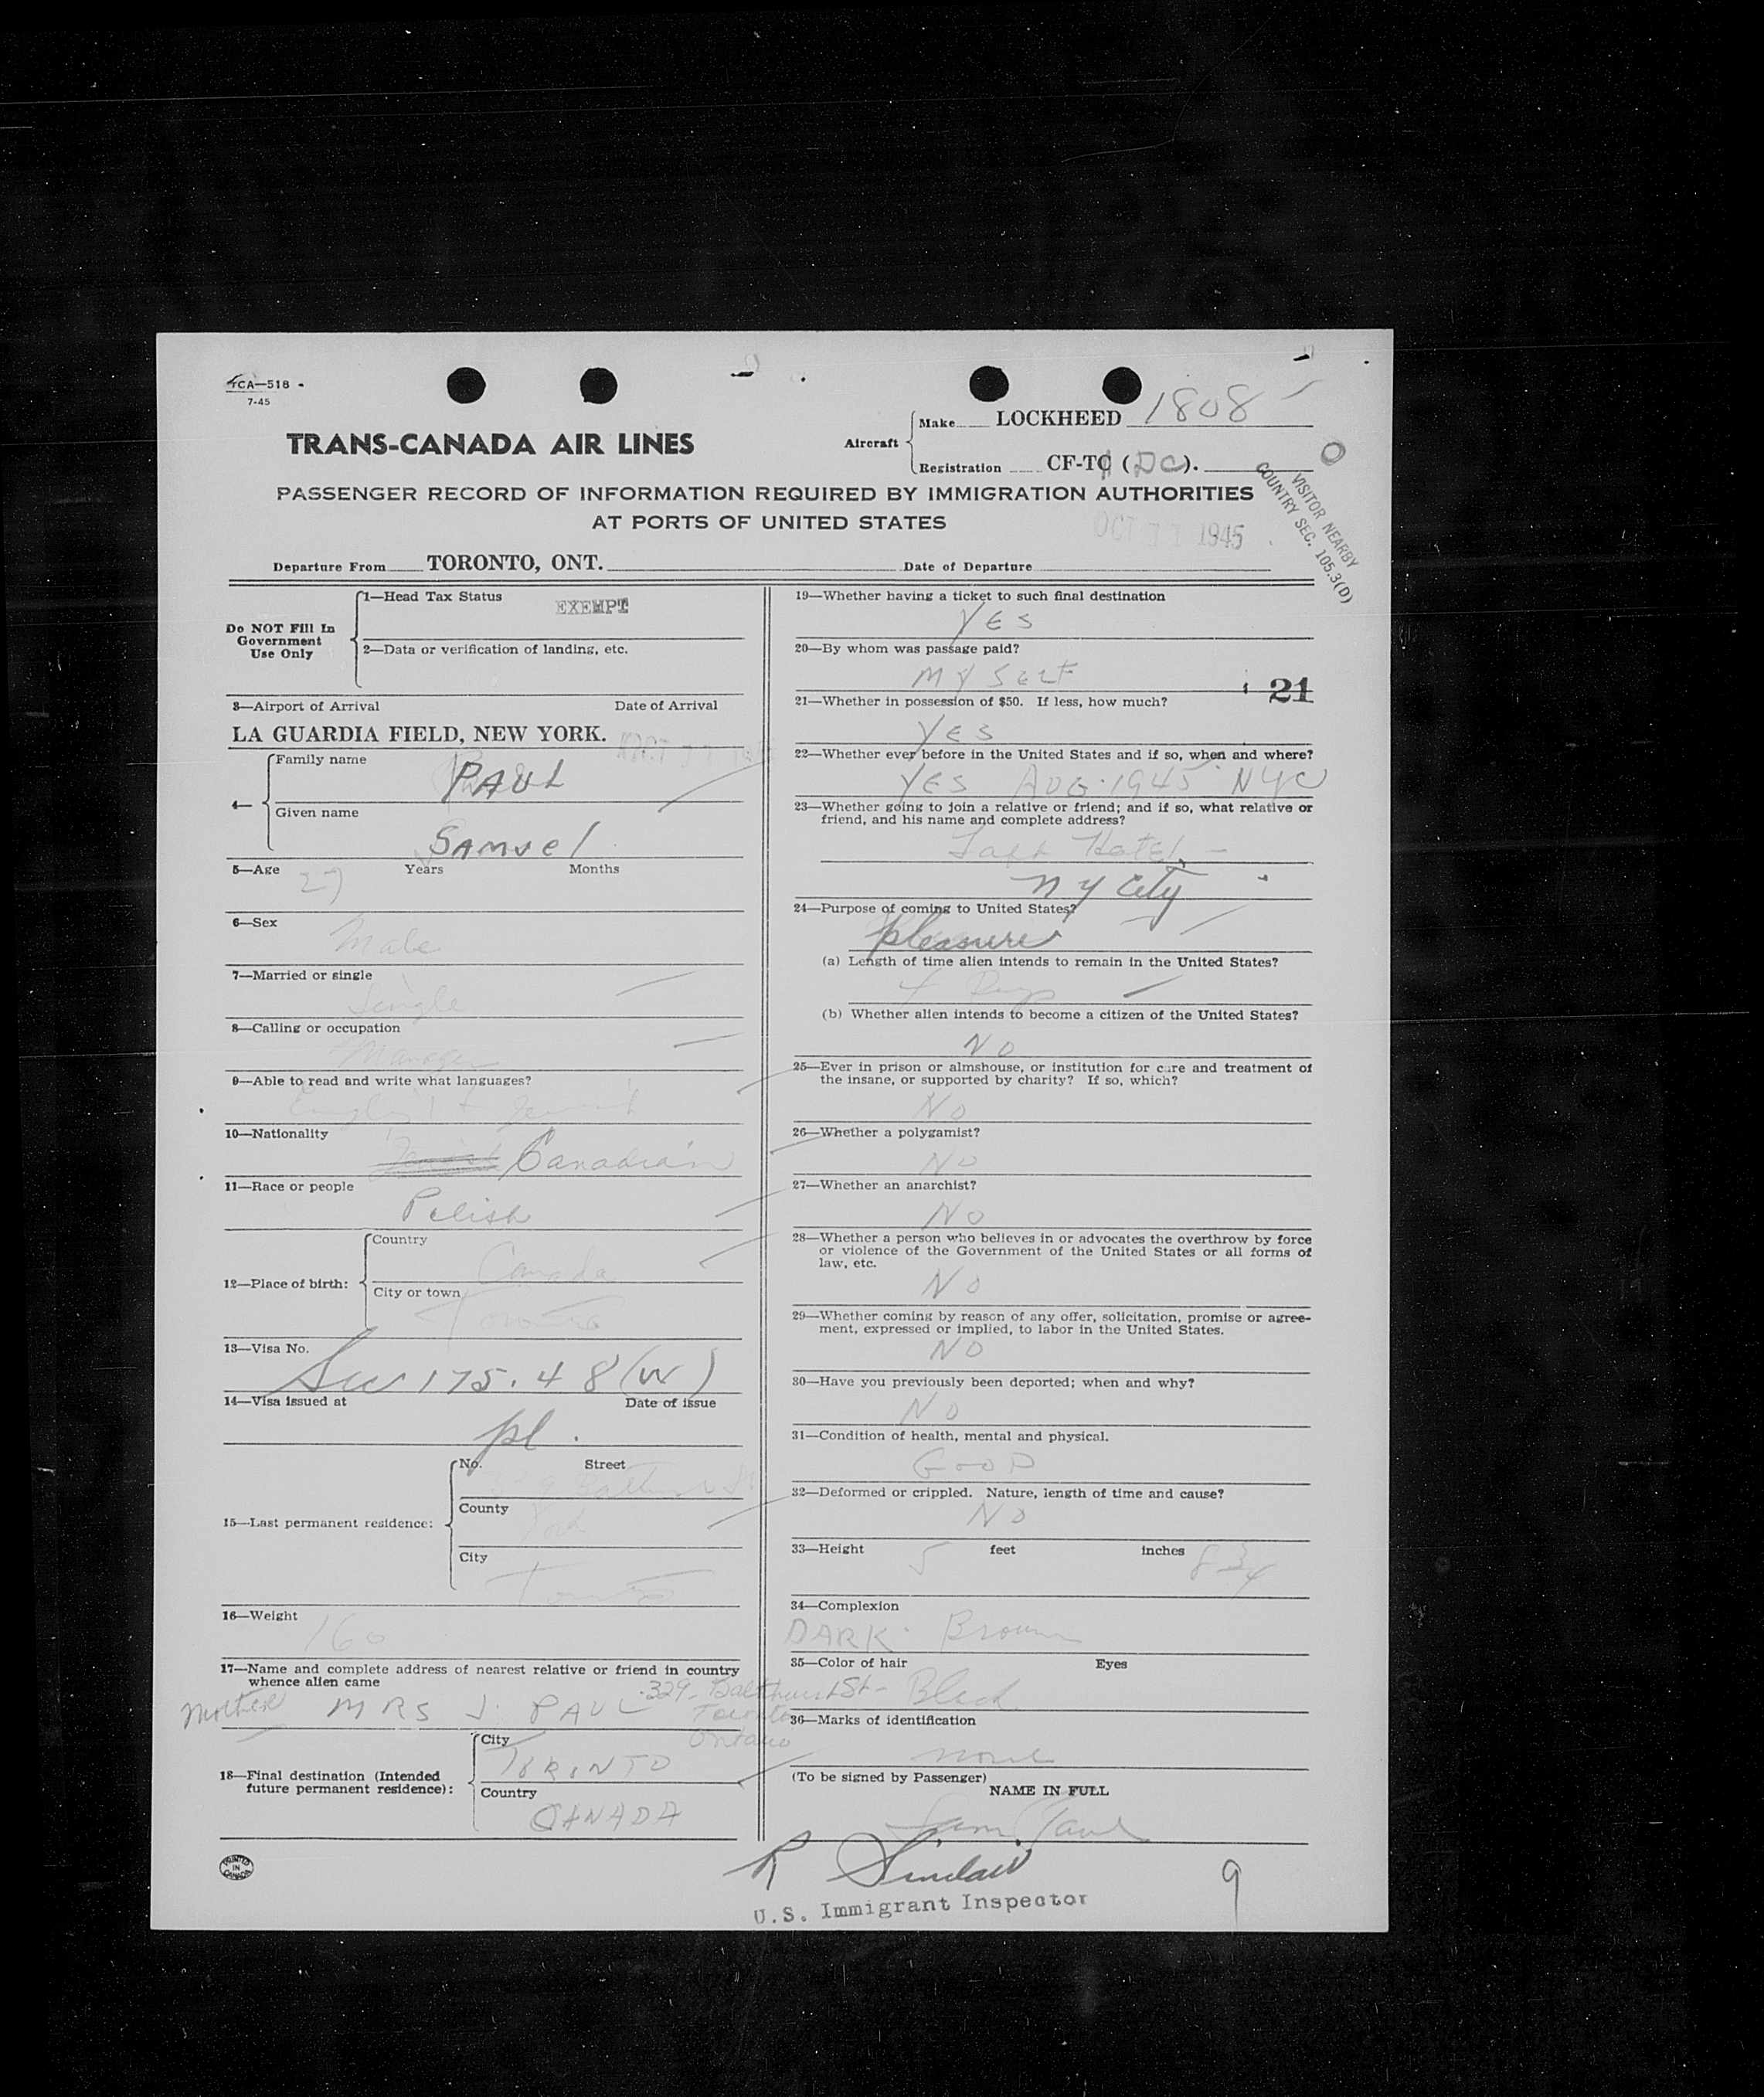 TCA—518
7-45
TRANS-CANADA AIR LINES
Aircraft
Make LOCKHEED 1808
Registration CF-TC (DC).
PASSENGER RECORD OF INFORMATION REQUIRED BY IMMIGRATION AUTHORITIES
AT PORTS OF UNITED STATES
VISITOR NEARBY
COUNTRY SEC. 105.3(D)
OCT 1945
Departure From TORONTO, ONT. Date of Departure
Do NOT Fill In
Government
Use Only
1—Head Tax Status EXEMPT
2—Data or verification of landing, etc.
3—Airport of Arrival Date of Arrival
LA GUARDIA FIELD, NEW YORK.
4—
Family name
PAUL
Given name
SAMUEL
5—Age 27 Years Months
6—Sex
Male
7—Married or single
Single
8—Calling or occupation
Manager
9—Able to read and write what languages?
English
10—Nationality
Canadian
11—Race or people
Polish
12—Place of birth:
Country
Canada
City or town
Toronto
13—Visa No.
175.48 (W)
14—Visa issued at Date of issue
pl.
15—Last permanent residence:
No. Street
County
York
City
Toronto
16—Weight
160
17—Name and complete address of nearest relative or friend in country
whence alien came
Mother MRS J. PAUL 329- Balthurst St-
Toronto
Ontario
18—Final destination (Intended
future permanent residence):
City
TORONTO
Country
CANADA
PRINTED
IN
CANADA
19—Whether having a ticket to such final destination
YES
20—By whom was passage paid?
MY SELF
21
21—Whether in possession of $50. If less, how much?
YES
22—Whether ever before in the United States and if so, when and where?
YES AUG. 1945 NYC
23—Whether going to join a relative or friend; and if so, what relative or
friend, and his name and complete address?
Taft Hotel
NY City
24—Purpose of coming to United States?
pleasure
(a) Length of time alien intends to remain in the United States?
Days
(b) Whether alien intends to become a citizen of the United States?
NO
25—Ever in prison or almshouse, or institution for care and treatment of
the insane, or supported by charity? If so, which?
NO
26—Whether a polygamist?
NO
27—Whether an anarchist?
NO
28—Whether a person who believes in or advocates the overthrow by force
or violence of the Government of the United States or all forms of
law, etc.
NO
29—Whether coming by reason of any offer, solicitation, promise or agree-
ment, expressed or implied, to labor in the United States.
NO
30—Have you previously been deported; when and why?
NO
31—Condition of health, mental and physical.
GOOD
32—Deformed or crippled. Nature, length of time and cause?
NO
33—Height 5 feet inches 8 3/4
34—Complexion
DARK. Brown
35—Color of hair Eyes
Black
36—Marks of identification
none
(To be signed by Passenger)
NAME IN FULL
Sam Paul
R Sinclair
U.S. Immigrant Inspector
9